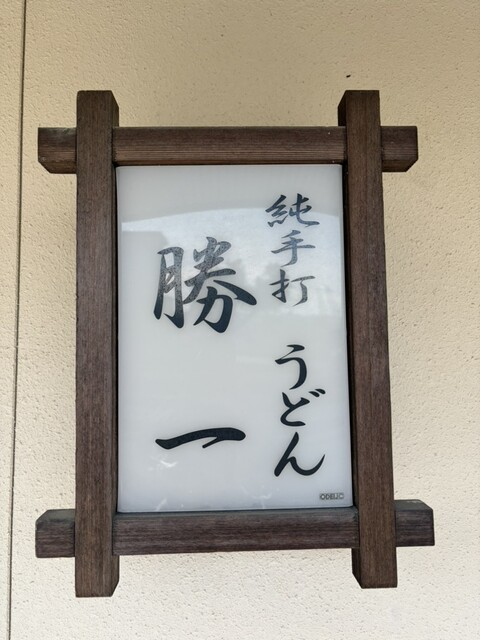 純手打 うどん
勝一